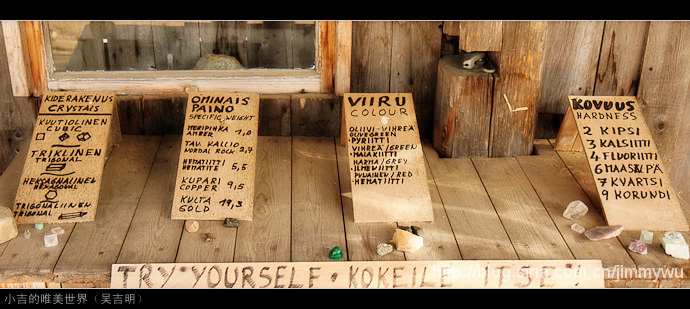 KIDERAKENUS
CRYSTALS
KUUTIOLINEN
CUBIC
TRIKLINEN
TRIGONAL
HEKSAGNAALINEN
HEXAGONAL
TRIGONAALINEN
TRIGONAL
OMINAIS
PAINO
SPECIFIC WEIGHT
MERIPIHKA 1,0
AMBER
TAV. KALLIO 2,7
NORMAL ROCK
HEMATIITTI 5,5
HEMATITE
KUPARI 9,5
COPPER
KULTA 19,3
GOLD
VIIRU
COLOUR
OLIIVI-VIHREÄ
OLIVEGREEN
-PYRIITTI
VIHREÄ/GREEN
-MALAKIITTI
HARMA/GREY
-ILMENIITTI
PUNAINEN/RED
-HEMATIITTI
KOVUUS
HARDNESS
2 KIPSI
3 KALSIITTI
4 FLUORIITTI
6 MAASÄLPÄ
7 KVARTSI
9 KORUNDI
TRY YOURSELF · KOKEILE ITSE!
http://blog.sina.com.cn/jimmywu
小吉的唯美世界（吴吉明）